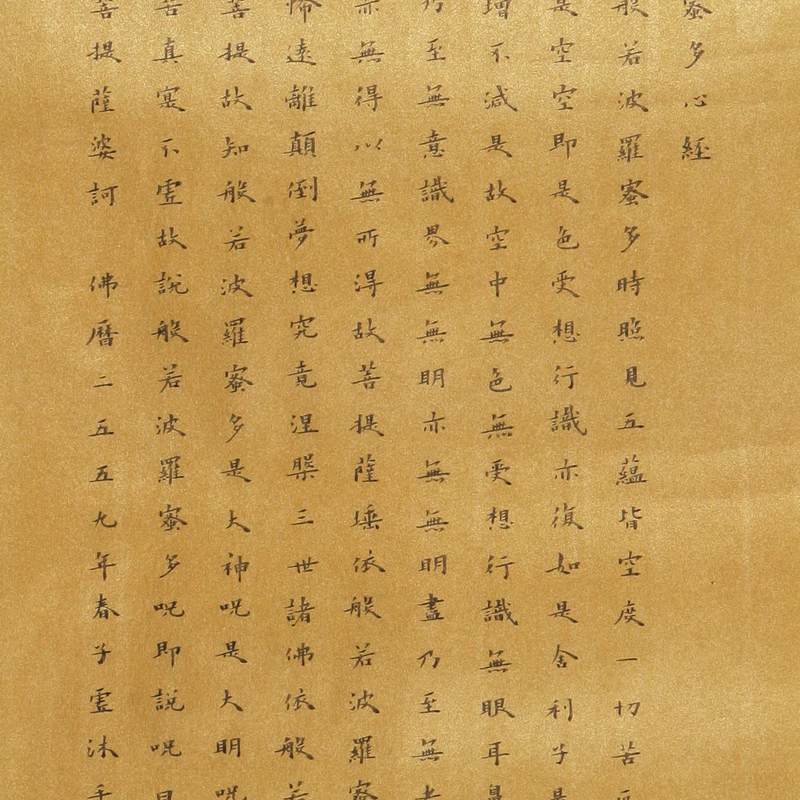 蜜多心經
般若波羅蜜多時照見五蘊皆空度一切苦
是空空即是色受想行識亦復如是舍利子是
增不減是故空中無色無受想行識無眼耳鼻
乃至無意識界無無明亦無無明盡乃至無老
亦無得以無所得故菩提薩埵依般若波羅蜜
怖遠離顛倒夢想究竟涅槃三世諸佛依般若
菩提故知般若波羅蜜多是大神咒是大明咒
苦真實不虛故說般若波羅蜜多咒即說咒曰
菩提薩婆訶 佛曆二五五九年春子虛沐手